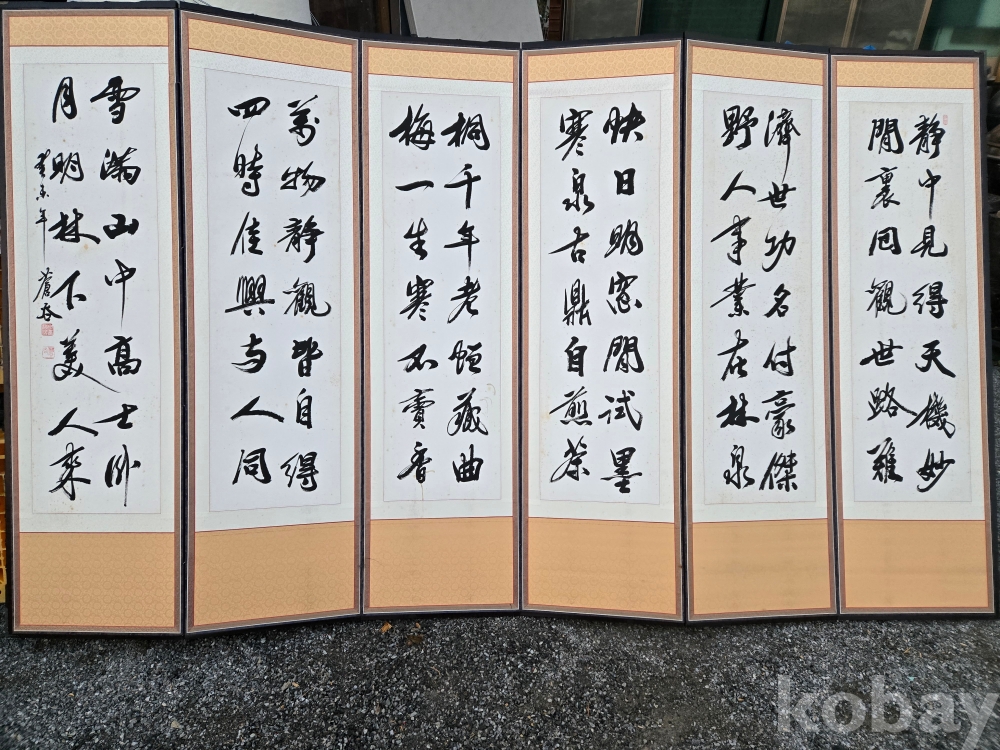 靜中見得天機妙
閒裏回觀世路難
濟世功名付豪傑
野人事業在林泉
快日明窓閒試墨
寒泉古鼎自煎茶
桐千年老恒藏曲
梅一生寒不賣香
萬物靜觀皆自得
四時佳興与人同
雪滿山中高士臥
月明林下美人來
癸未年 蒼
kobay